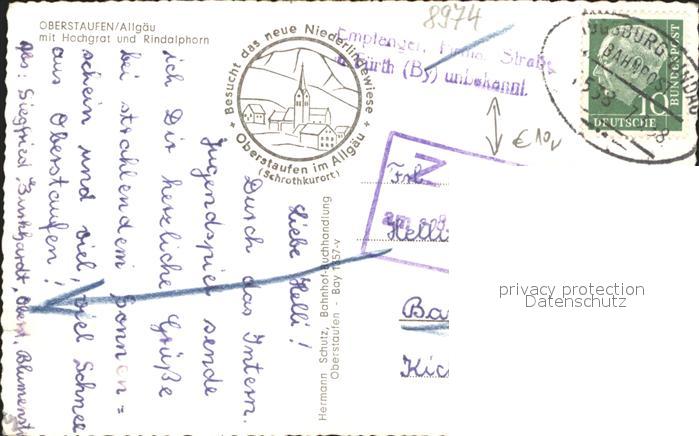 OBERSTAUFEN/Allgäu
mit Hochgrat und Rindalphorn
8974
Besucht das neue Niederlifte wiese
Oberstaufen im Allgäu
(Schrothkurort)
Empfänger, Firma, Straße
in Fürth (By) unbekannt.
AUGSBURG
BAHNPOST
10
DEUTSCHE
BUNDESPOST
€ 10,-
Liebe Helli!
Durch das Intern.
Jugendspiel sende
ich Dir herzliche Grüße
bei strahlendem Sonnen=
schein und viel, viel Schnee
aus Oberstaufen!
Abs: Siegfried Burkhardt, Oberst. Blumenstr
Hermann Schutz, Bahnhof-Buchhandlung
Oberstaufen - Bay 1257-v
Frl.
Helli
Ba
Kic
privacy protection
Datenschutz